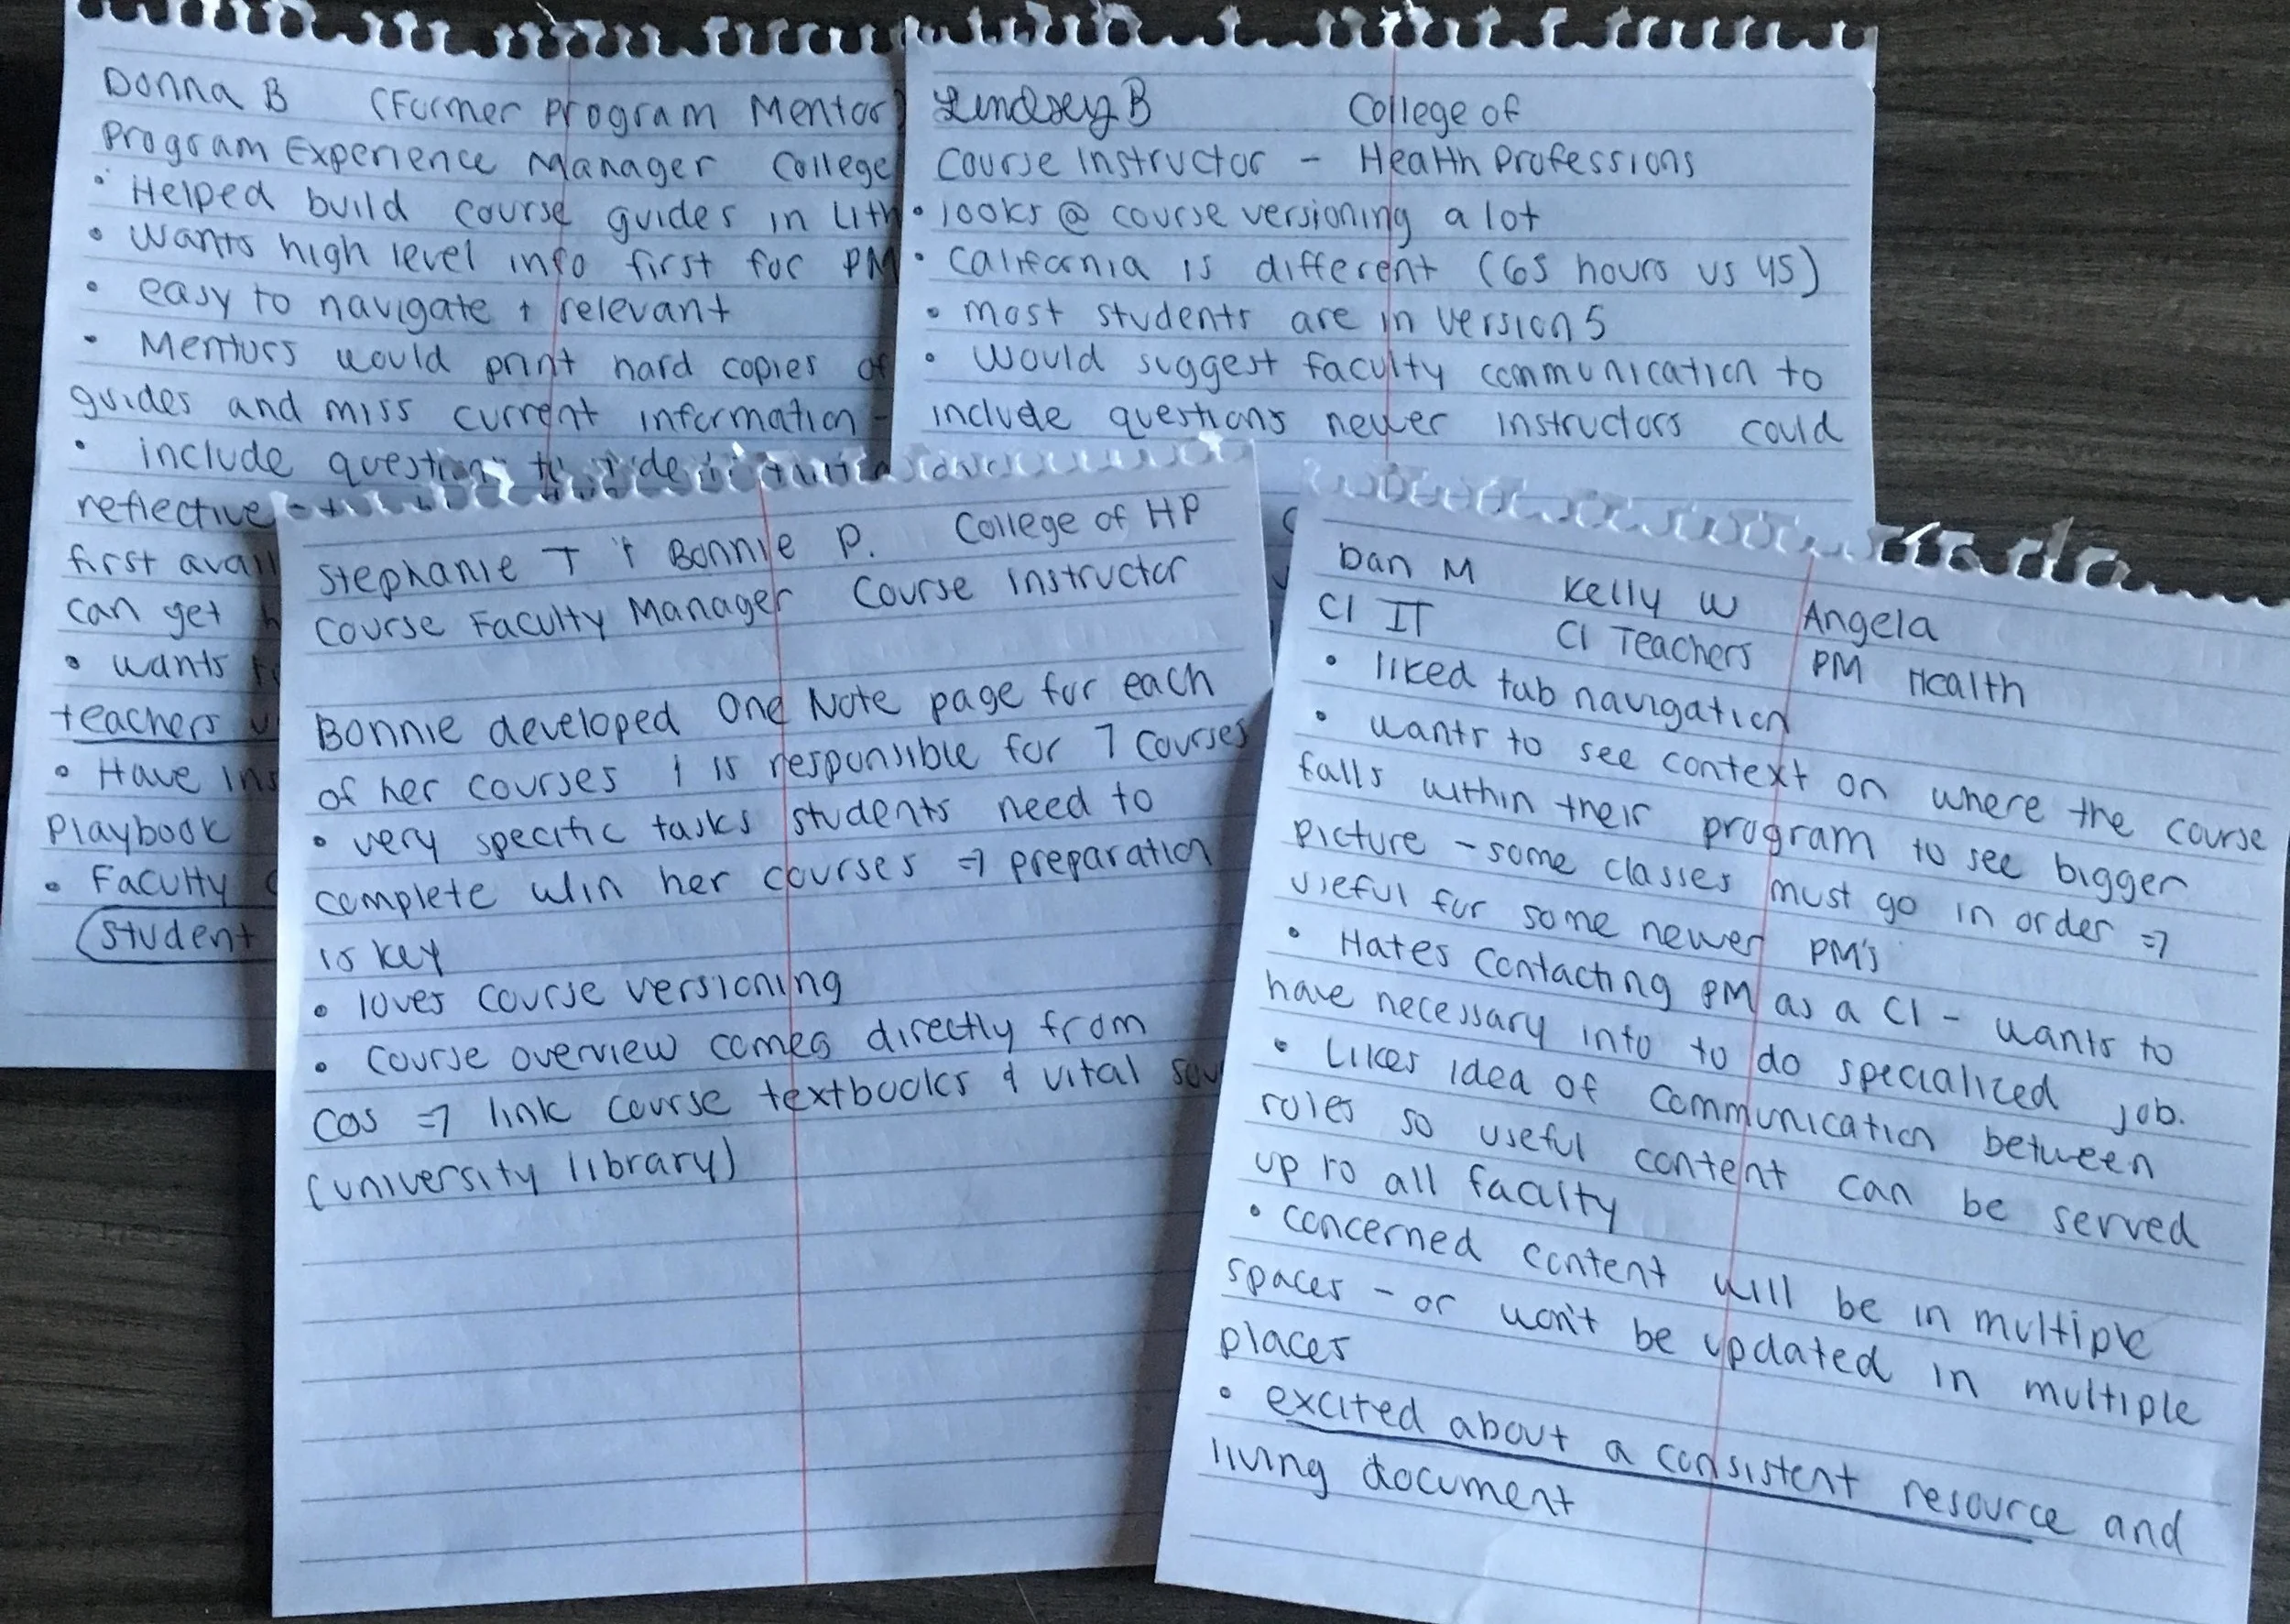 Donna B (Former Program Mentor)
Program Experience Manager College
• Helped build course guides in Lith
• wants high level info first for PM
• easy to navigate + relevant
• Mentors would print hard copies of
guides and miss current information -
• include
reflective
first avail
can get
• wants
teachers
• Have ins
Playbook
• Faculty
Student
Lindsey B College of
Course Instructor - Health Professions
• looks @ course versioning a lot
• California is different (65 hours vs 45)
• most students are in version 5
• would suggest faculty communication to
include questions newer instructors could
Stephanie T + Bonnie P. College of HP
Course Faculty Manager Course Instructor
Bonnie developed One Note page for each
of her courses + is responsible for 7 courses
• very specific tasks students need to
complete w/in her courses => preparation
is key
• loves course versioning
• course overview comes directly from
COS => link course textbooks + vital sou
(university library)
Dan M Kelly W Angela
CI IT CI Teachers PM Health
• liked tab navigation
• wants to see context on where the course
falls within their program to see bigger
picture - some classes must go in order =>
useful for some newer PM's
• Hates contacting PM as a CI - wants to
have necessary info to do specialized job.
• Likes idea of communication between
roles so useful content can be served
up to all faculty
• concerned content will be in multiple
spaces - or won't be updated in multiple
places
• excited about a consistent resource and
living document